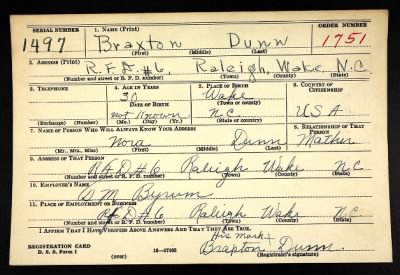 SERIAL NUMBER 1. NAME (Print) ORDER NUMBER
1497 Braxton Dunn 1751
(First) (Middle) (Last)
2. ADDRESS (Print)
R.F.D.#6, Raleigh, Wake, N.C.
(Number and street or R. F. D. number) (Town) (County) (State)
3. TELEPHONE 4. AGE IN YEARS 5. PLACE OF BIRTH 6. COUNTRY OF CITIZENSHIP
30 Wake
DATE OF BIRTH (Town or county)
not Known NC USA
(Exchange) (Number) (Mo.) (Day) (Yr.) (State or country)
7. NAME OF PERSON WHO WILL ALWAYS KNOW YOUR ADDRESS 8. RELATIONSHIP OF THAT PERSON
Nora Dunn Mother
(Mr., Mrs., Miss) (First) (Middle) (Last)
9. ADDRESS OF THAT PERSON
RFD#6 Raleigh Wake N.C.
(Number and street or R. F. D. number) (Town) (County) (State)
10. EMPLOYER'S NAME
Byrum
11. PLACE OF EMPLOYMENT OR BUSINESS
RFD#6 Raleigh Wake NC
(Number and street or R. F. D. number) (Town) (County) (State)
I AFFIRM THAT I HAVE VERIFIED ABOVE ANSWERS AND THAT THEY ARE TRUE.
His Mark
REGISTRATION CARD Braxton Dunn
D. S. S. Form 1 (over) 16—17105 (Registrant's signature)